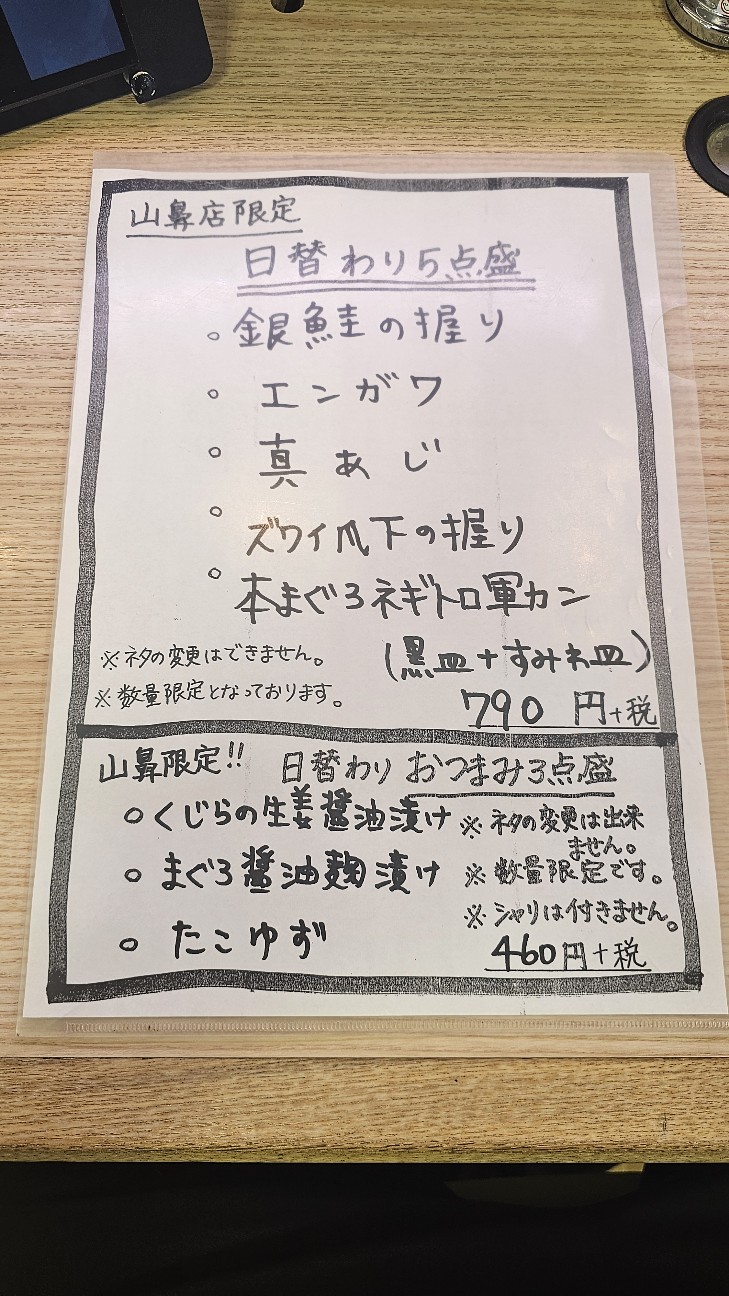 山鼻店限定
日替わり5点盛
。銀鮭の握り
。エンガワ
。真あじ
。ズワイ爪下の握り
。本まぐろネギトロ軍カン
※ネタの変更はできません。
(黒皿+すみれ皿)
※数量限定となっております。
790円+税
山鼻限定!! 日替わりおつまみ3点盛
○くじらの生姜醤油漬け
※ネタの変更は出来
ません。
○まぐろ醤油麹漬け
※数量限定です。
※シャリは付きません。
○たこゆず
460円+税